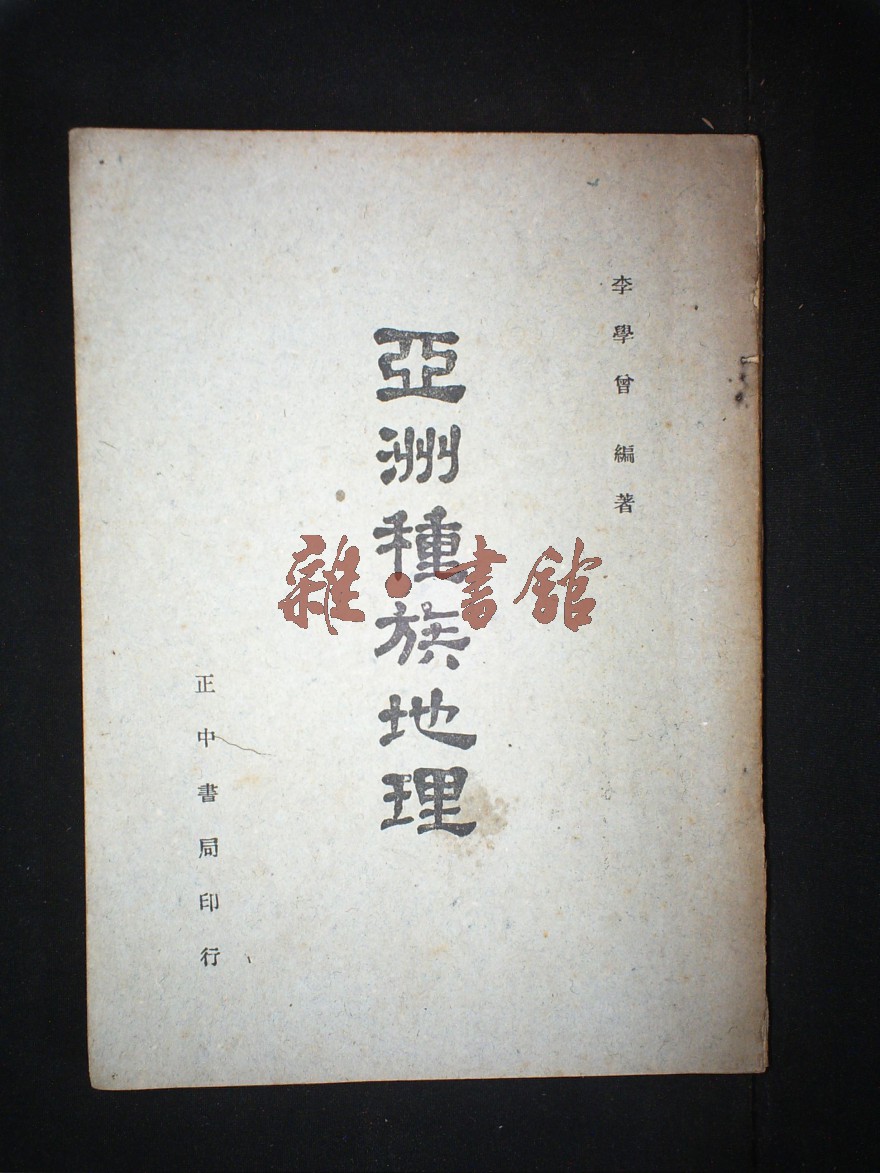 李學曾編著
亞洲種族地理
正中書局印行
雜·書館